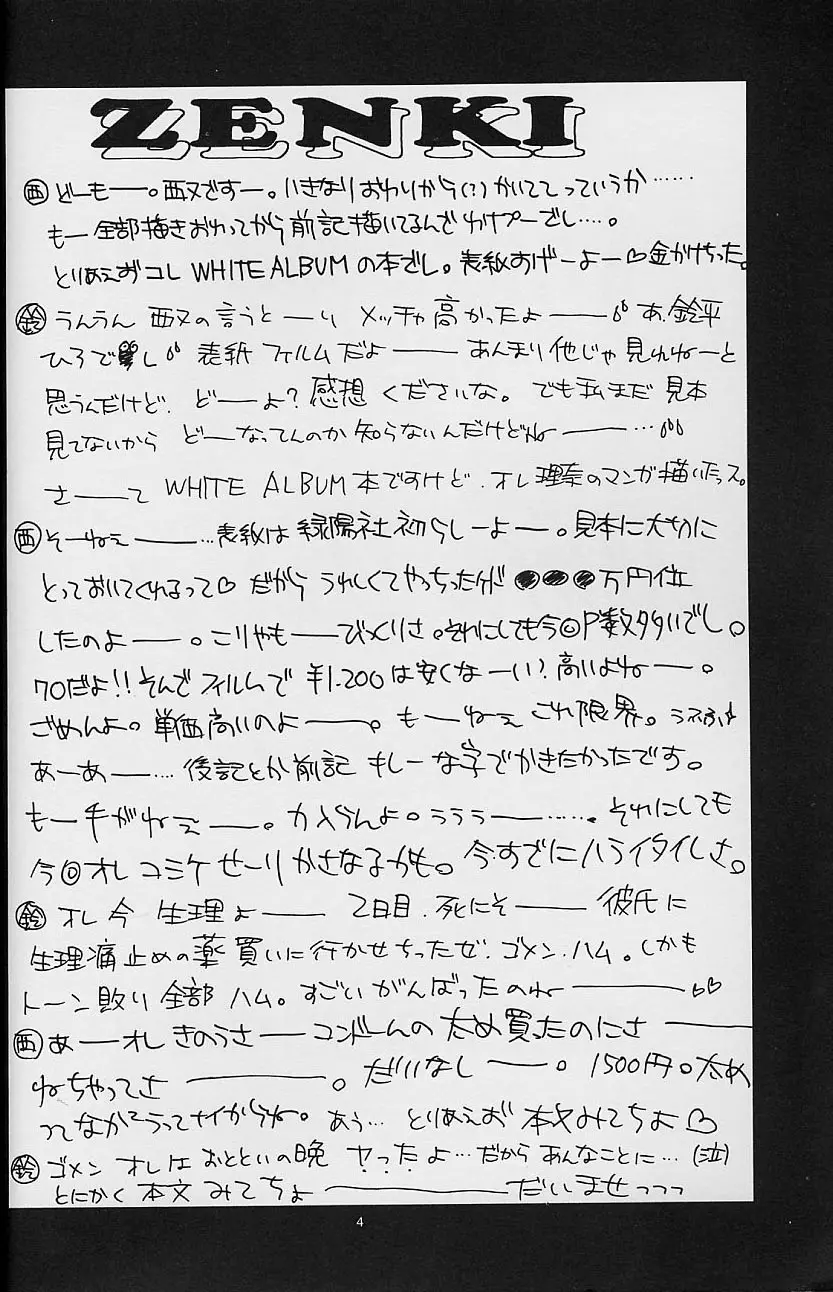 ZENKI
㊄ どーもー。西又ですー。いきなりおわりから(?)かいててっていうか……
もー全部描きおわってから前記描いてるんでわけプーでし…。
とりあえずコレ WHITE ALBUMの本でし。表紙すげーよー♡金かけちった。
㊎ うんうん 西又の言うとーり メッチャ高かったよー あ、鈴平
ひろでし 表紙 フィルムだよー あんまり他じゃ見れねーと
思うんだけど、どーよ?感想 くださいな。でも私まだ 見本
見てないから どーなってんのか知らないんだけどねー…
さーて WHITE ALBUM本ですけど、オレ理奈のマンガ描いたっス。
西 そーねぇー…表紙は緑陽社初らしーよー。見本に大切に
とっておいてくれるって♡ だから うれしくてやっちったけど ●●●万円位
したのよー。こりゃもーびっくりさ。それにしても今回P数タタいでし。
70だよ!!そんでフィルムで ¥1.200は安くなーい?高いよねー。
ごめんよ。単価高いのよー。もーねぇ これ限界。
あーあー…後記とか前記 もしーな字でかきたかったです。
もー手がねぇー。力入らんよ。ううぅー……. それにしても
今回オレ コミケ せーりかさなるかも。今すでにハライタイしさ。
鈴 オレ今 生理よー 2日目、死にそー 彼氏に
生理痛止めの薬 買いに行かせちったぜ、ゴメン、ハム。しかも
トーン貼り 全部 ハム。すごい がんばったのねー♡♡
西 あーオレ きのうさーコンドームの 太め買ったのにさー
ねちゃってさー。だいなしー。1500円。太め
ってなかなかうってナイからね。あぅ… とりあえず 本文みてちょ♡
鈴 ゴメン オレは おとといの晩 ヤったよ…だから あんなことに…(泣)
とにかく 本文 みてちょー だいませっっっ
4